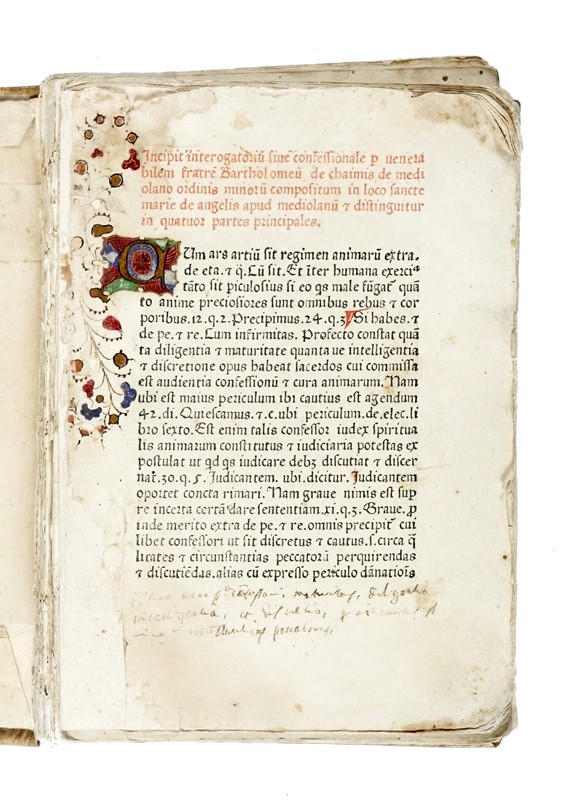 Incipit interogatoriū siue confessionale ꝑ venera
bilem fratrē Bartholomeū de chaimis de medi
olano ordinis minorū compositum in loco sancte
marie de angelis apud mediolanū ⁊ distinguitur
in quatuor partes principales.
CUm ars artiū sit regimen animarū extra.
de eta. ⁊ q̄. Cū sit. Et īter humana exerci
tāto sit ꝑiculosius si eo qꝫ male fūgat᷑ quā
to anime preciosiores sunt omnibus rebus ⁊ cor
poribus. 12. q. 2. Precipimus. 24. q. 3. Si habes. ⁊
de pe. ⁊ re. Cum infirmitas. Profecto constat quā
ta diligentia ⁊ maturitate quanta ue intelligentia
⁊ discretione opus habeat sacerdos cui commissa
est audientia confessionū ⁊ cura animarum. Nam
ubi est maius periculum ibi cautius est agendum
42. di. Quiescamus. ⁊. c. ubi periculum. de. elec. li
bro sexto. Est enim talis confessor iudex spiritua
lis animarum constitutus ⁊ iudiciaria potestas ex
postulat ut qd qs iudicare debꝫ discutiat ⁊ discer
nat. 30. q. 5. Judicantem. ubi. dicitur. Judicantem
oportet concta rimari. Nam graue nimis est suꝑ
re incerta certā dare sententiam. xi. q. 3. Graue. ꝓ
inde merito extra de pe. ⁊ re. omnis precipit᷑ cui
libet confessori ut sit discretus ⁊ cautus. s. circa q̄
licates ⁊ circunstantias peccatorū perquirendas
⁊ discutiēdas. alias cū expresso periculo dānatiōis
maturitas, diligentia
intelligentia, et